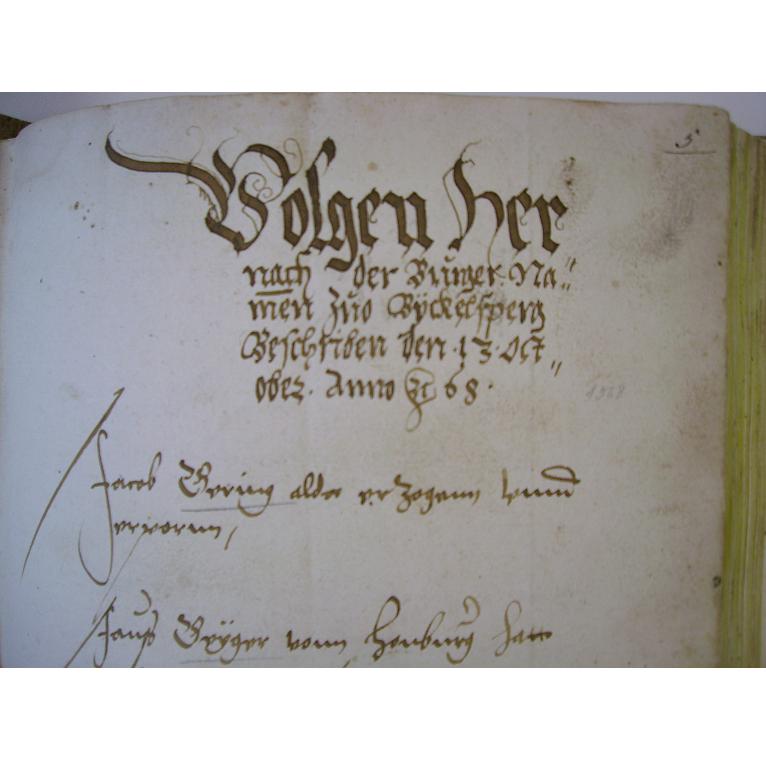 5
Volgen her
nach der Burger Na„
men zuo Byckelsperg
Beschriben den 13 Oct„
ober. Anno 68.
1568
Jacob Gering alda erzogenn vnnd
erporun,
Hanß Geyger vonn Honburg hatt